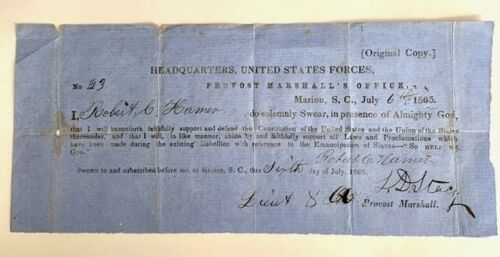 [Original Copy.]
HEADQUARTERS, UNITED STATES FORCES,
No. 23 PROVOST MARSHALL'S OFFICE,
Marion, S. C., July 6th 1865.
I, Robert C. Hamer, do solemnly Swear, in presence of Almighty God,
that I will henceforth faithfully support and defend the Constitution of the United States and the Union of the States
thereunder, and that I will, in like manner, abide by and faithfully support all Laws and Proclamations which
have been made during the existing Rebellion with reference to the Emancipation of Slaves—"So HELP ME
GOD." Robert C. Hamer
SWORN to and subscribed before me, at Marion, S. C., this Sixth day of July, 1865.
Lieut
Provost Marshall.